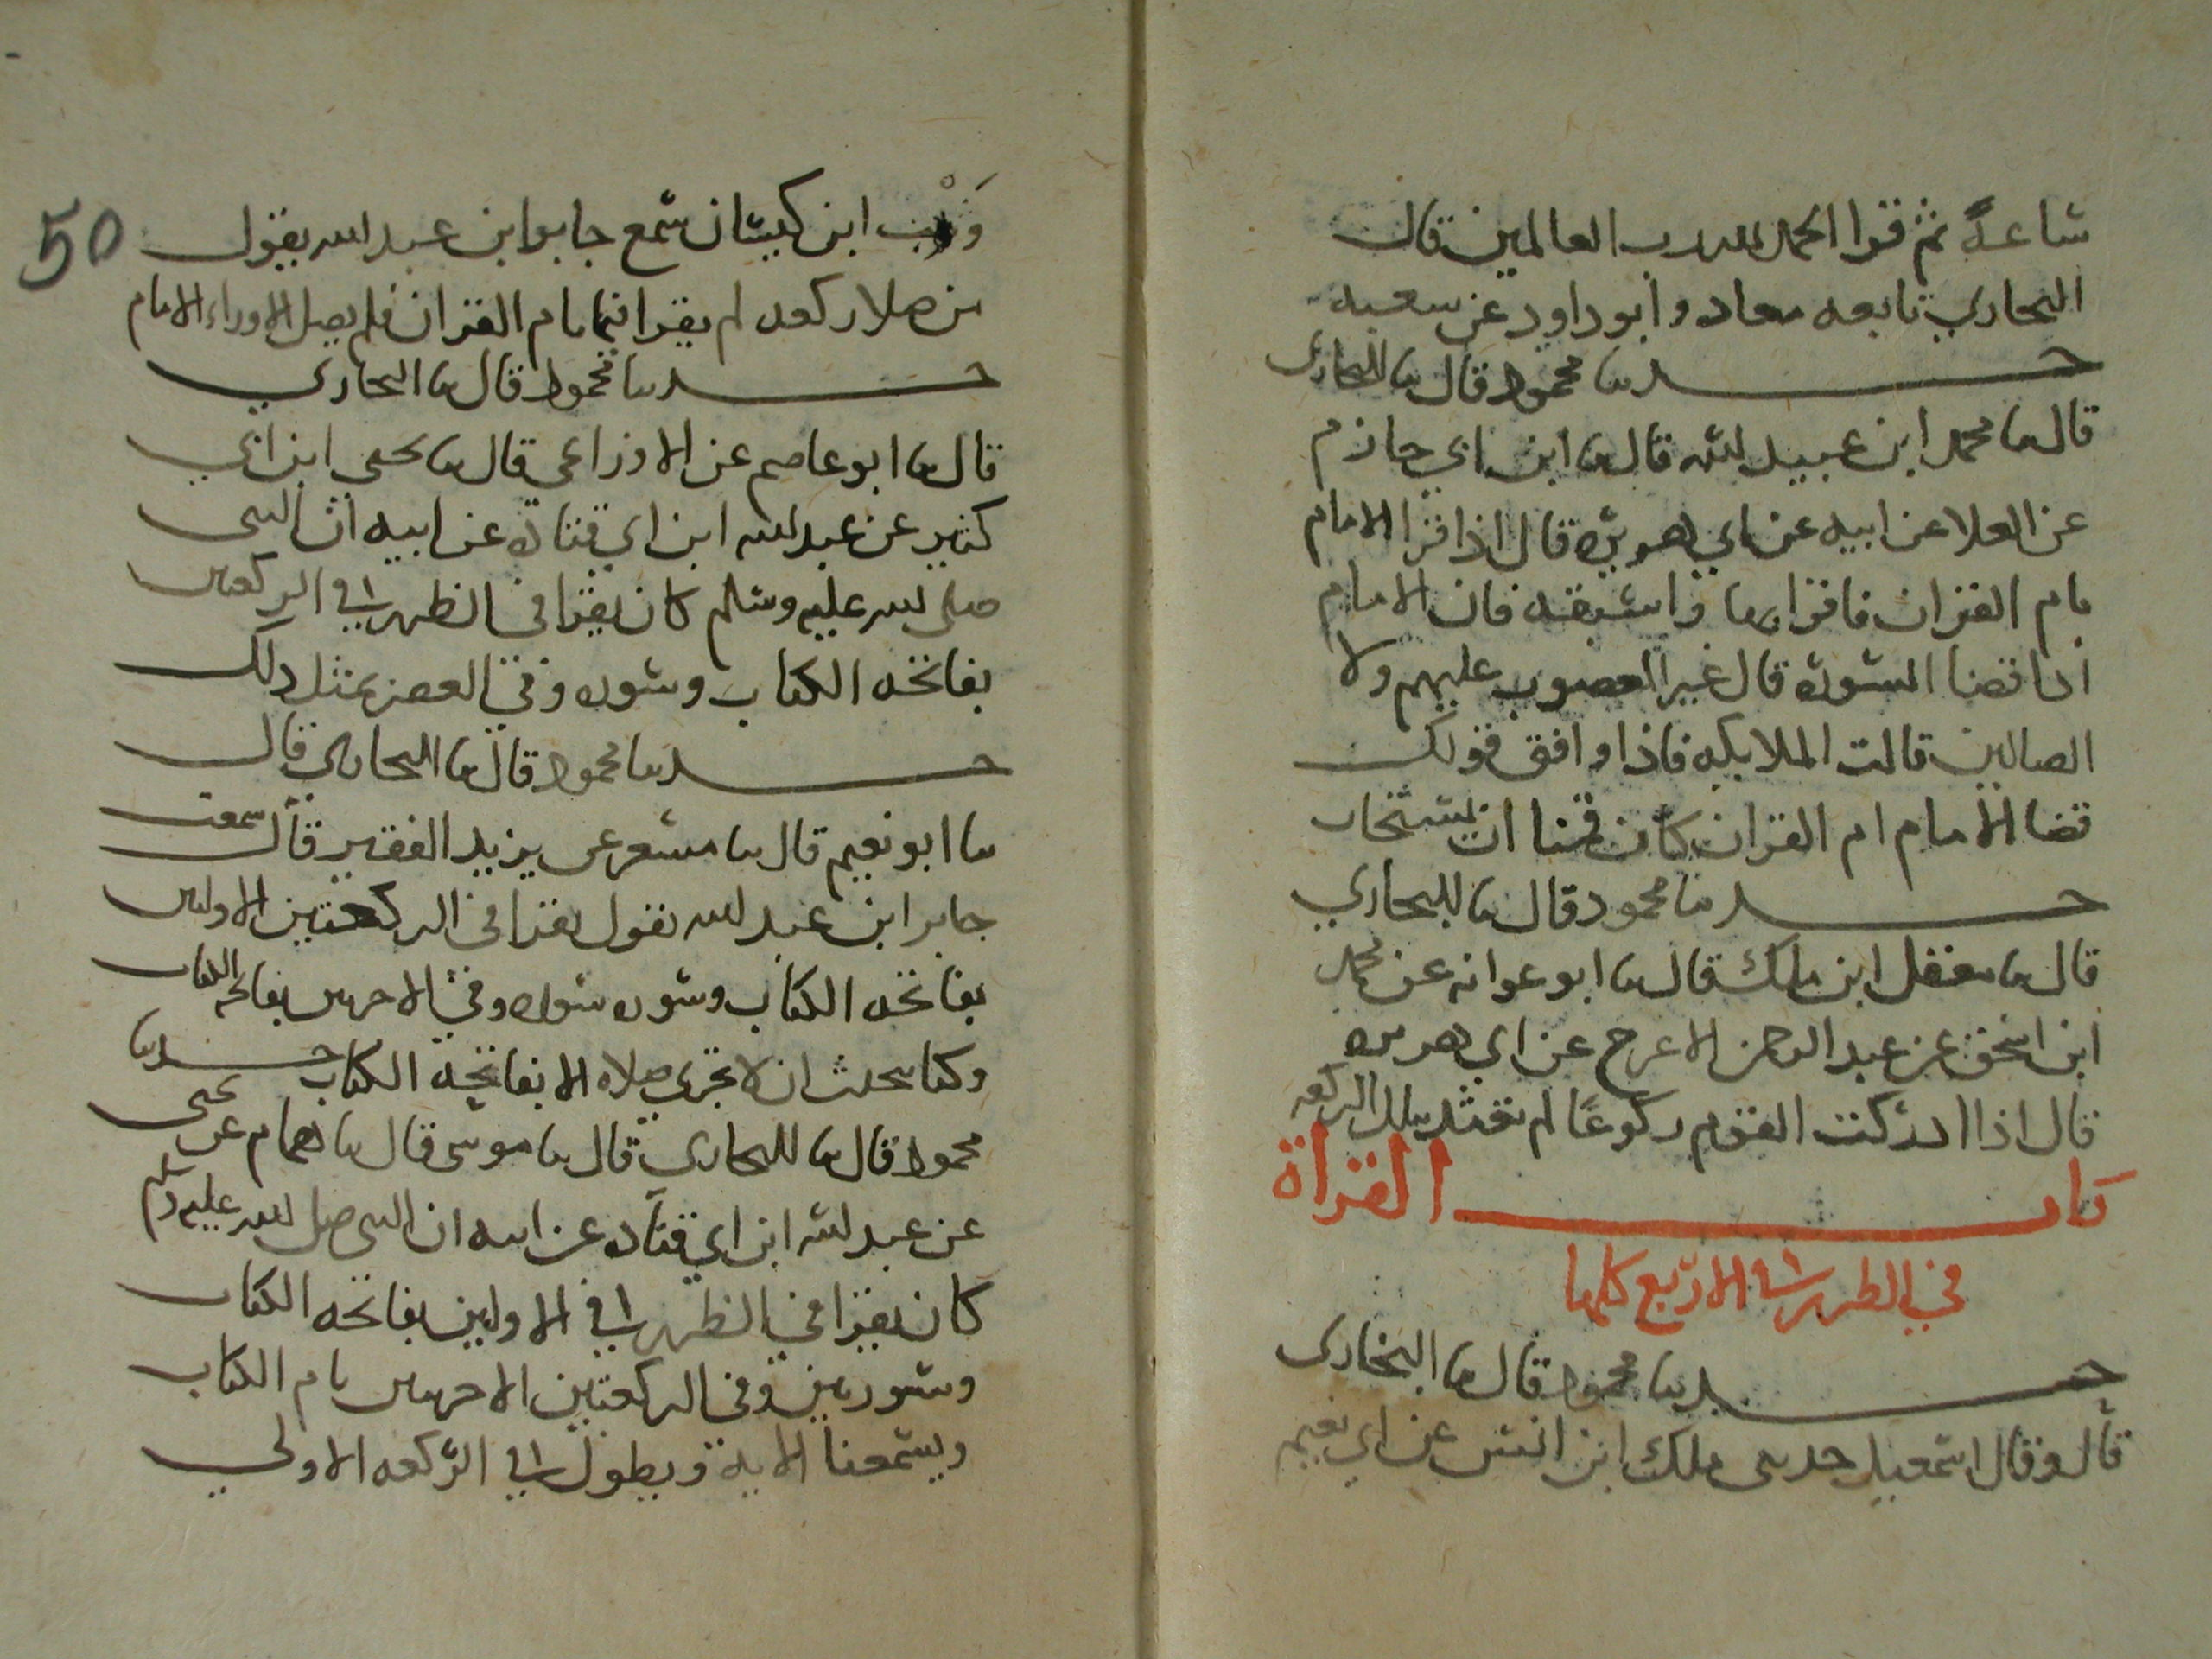 ساعة ثم قرا الحمد لله رب العالمين قال
البخاري تابعه معاد وابو داود عن سعبه
حدثنا محمود قال نا البخاري
قال نا محمد ابن عبيد الله قال نا ابن ابي حازم
عن العلا عن ابيه عن ابي هريره قال اذا قرا الامام
بام القران فاقرا بها واسبقه فان الامام
اذا قضا السورة قال غير المغضوب عليهم ولا
الضالين قالت الملايكه فاذا وافق قولك
قضا الامام ام القران كان قمنا ان يستجاب
حدثنا محمود قال نا البخاري
قال نا معقل ابن ملك قال نا ابو عوانه عن محمد
ابن اسحق عن عبد الرحمن الاعرج عن ابي هريره
قال اذا ادركت القوم ركوعًا لم تعتد بتلك الركعه
باب القراة
في الظهر في الاربع كلها
حدثنا محمود قال نا البخاري
قال وقال اسمعيل حدثني ملك ابن انس عن ابي نعيم
50
وهب ابن كيسان سمع جابر ابن عبد الله يقول
من صلا ركعه لم يقرا فيها بام القران فلم يصل الا وراء الامام
حدثنا محمود قال نا البخاري
قال نا ابو عاصم عن الاوزاعي قال نا يحيى ابن ابي
كثير عن عبد الله ابن ابي قتاده عن ابيه ان النبي
صلى الله عليه وسلم كان يقرا في الظهر في الركعتين
بفاتحه الكتاب وسوره وفي العصر بمثل ذلك
حدثنا محمود قال نا البخاري قال
نا ابو نعيم قال نا مسعر عن يزيد الفقير قال سمعت
جابر ابن عبد الله يقول يقرا في الركعتين الاولين
بفاتحه الكتاب وسوره سوره وفي الاخريين بفاتحه الكتاب
وكنا نحدث ان لا تجزي صلاه الا بفاتحه الكتاب حدثنا
محمود قال نا البخاري قال نا موسى قال نا همام عن يحيى
عن عبد الله ابن ابي قتاده عن ابيه ان النبي صلى الله عليه وسلم
كان يقرا في الظهر في الاولين بفاتحه الكتاب
وسورتين وفي الركعتين الاخريين بام الكتاب
ويسمعنا الايه ويطول في الركعه الاولي